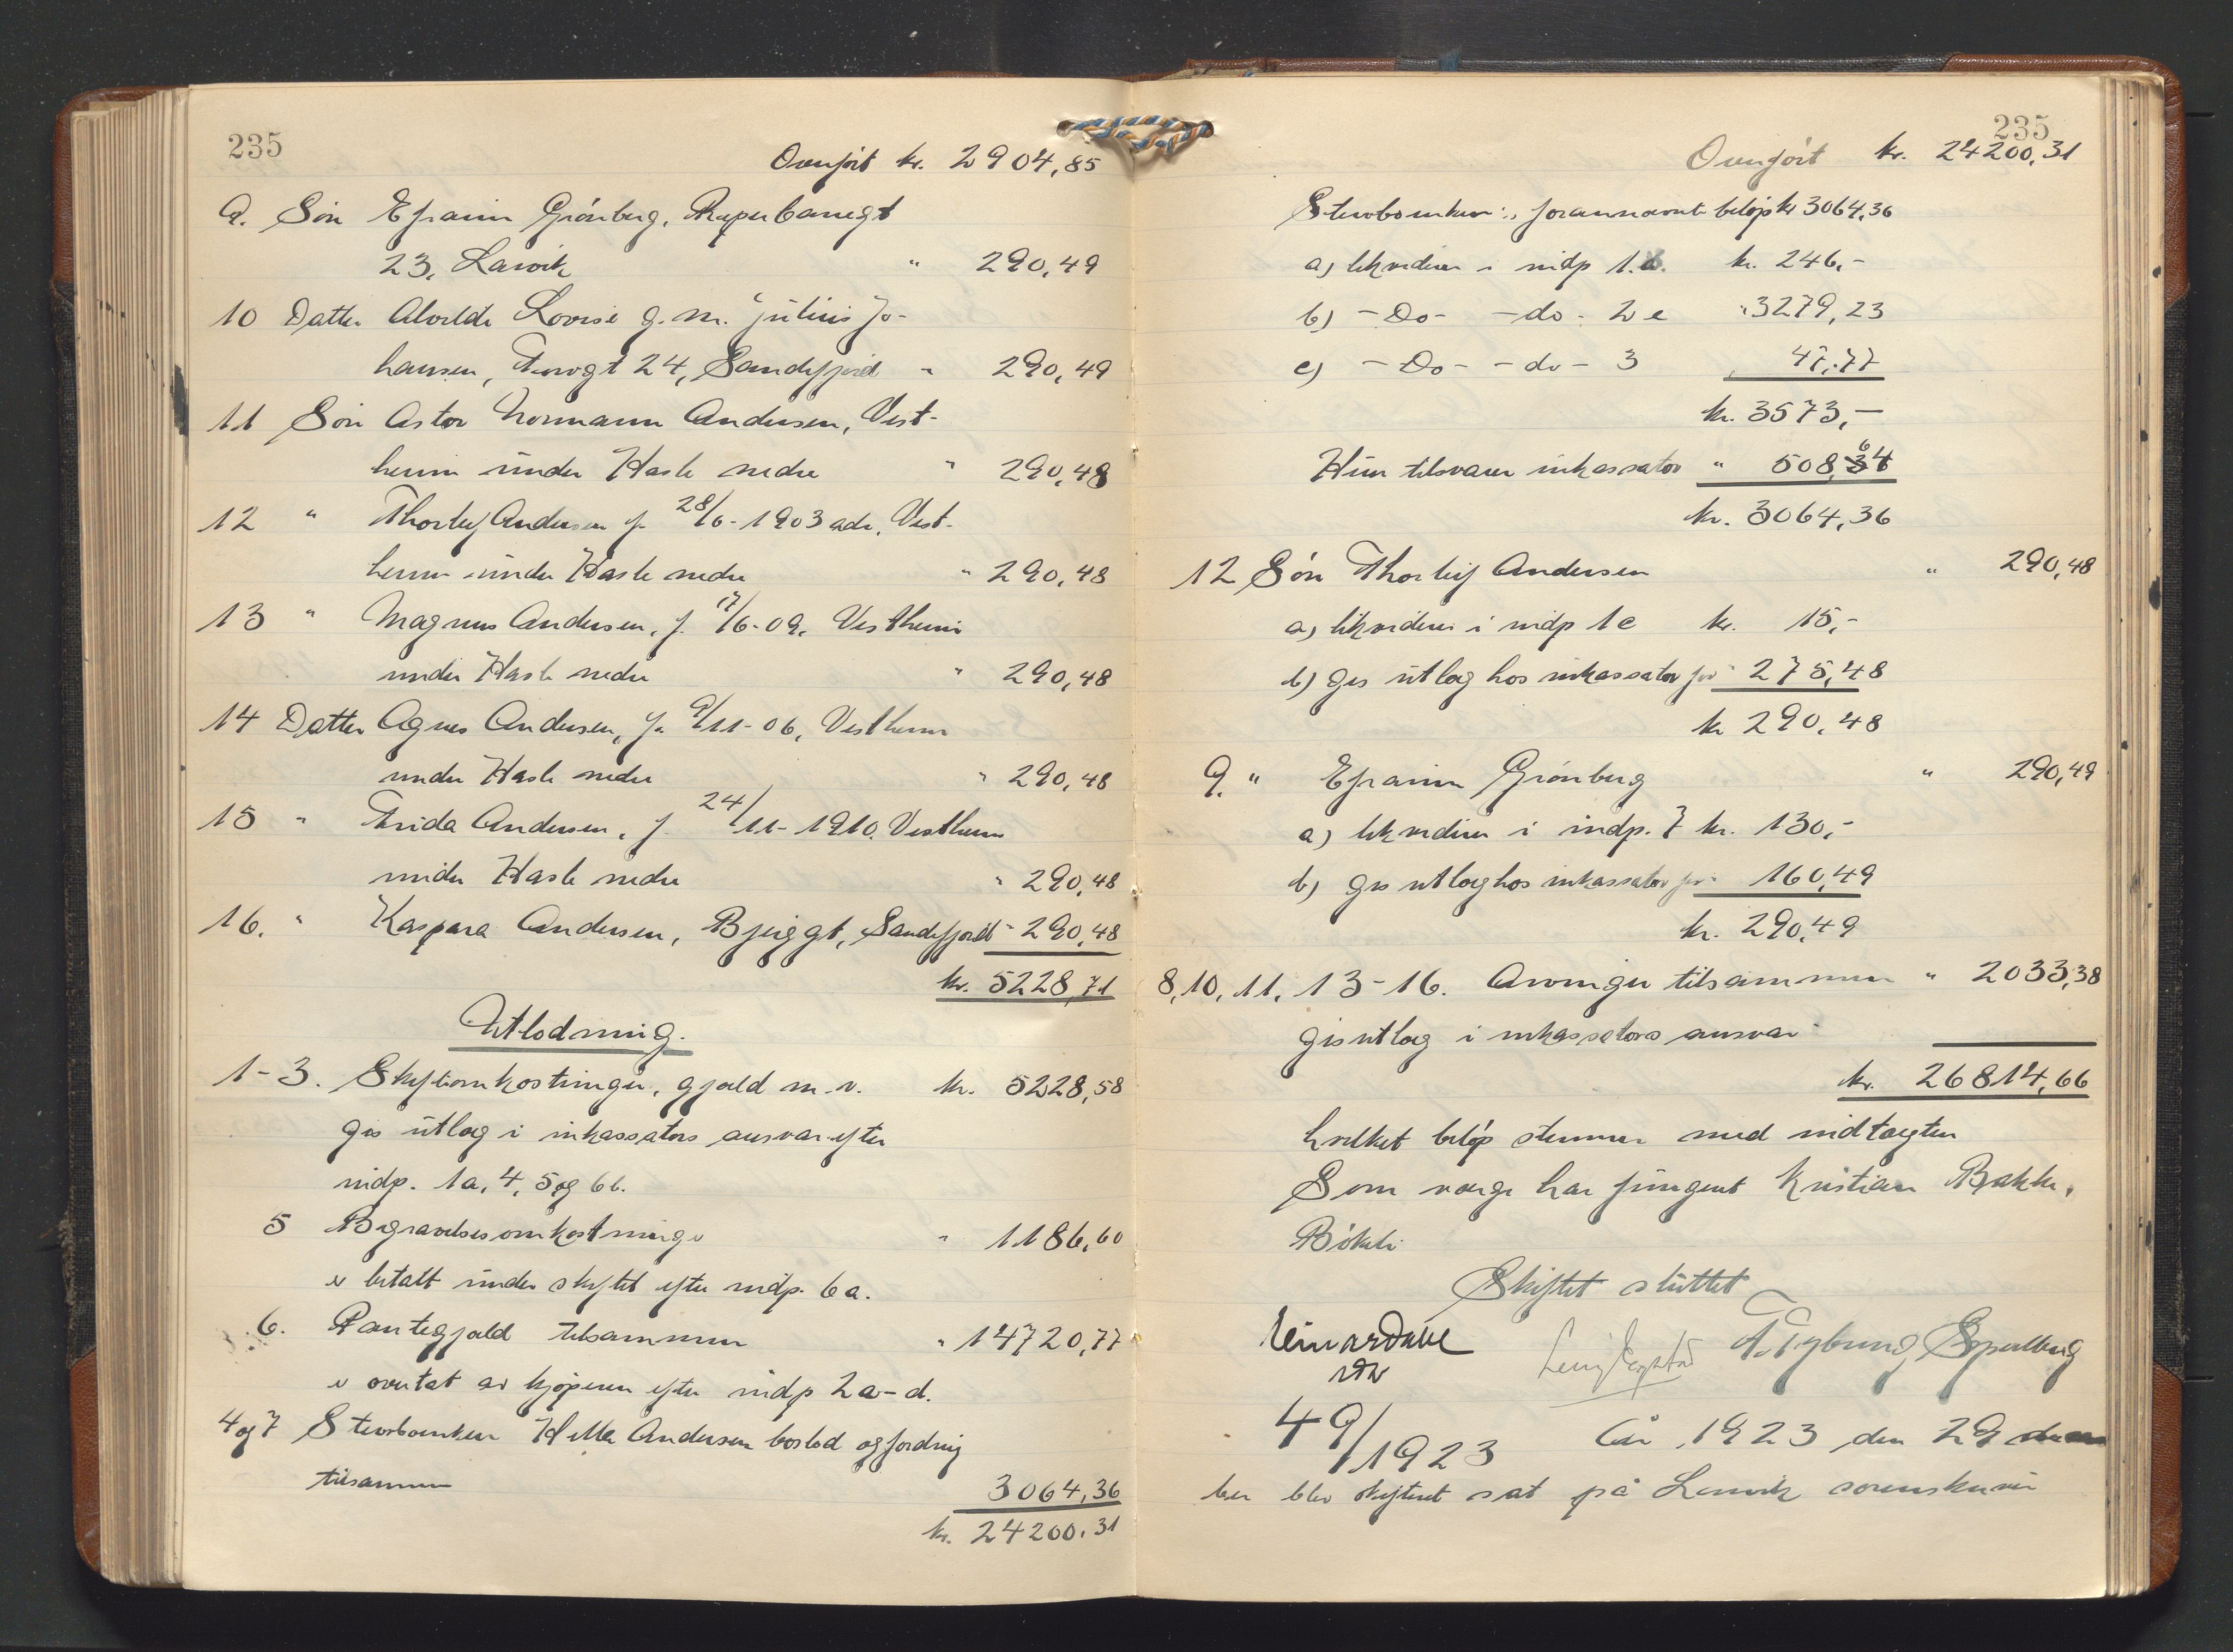 235
Overført kr. 2904,85
9. Søn Efraim Grønberg, Reperbanegt
23, Larvik " 290,49
10 Datter Alvilde Lovise g.m. Julius Jo-
hansen, 24, Sandefjord " 290,49
11 Søn Astor Normann Andersen, Vest-
heim under Hasle nedre " 290,48
12 " Thorleif Andersen f. 28/6-1903 adr. Vest-
heim under Hasle nedre " 290,48
13 " Magnus Andersen, f. 17/6-09, Vestheim
under Hasle nedre " 290,48
14 Datter Agnes Andersen, f. 9/11-06, Vestheim
under Hasle nedre " 290,48
15 " Frida Andersen, f. 24/11-1910. Vestheim
under Hasle nedre " 290,48
16. " Kaspara Andersen, Bjerggt, Sandefjord " 290,48
kr. 5228,71
Utlodning.
1-3. Skifteomkostninger, gjæld m.v. kr. 5228,58
gis utlæg i inkassators ansvar efter
indp. 1a, 4, 5 og 6b.
5 Begravelsesomkostninger " 1186,60
er betalt under skiftet efter indp. 6a.
6. Pantegjæld tilsammen " 14720,77
er overtat av kjøperen efter indp 2a-d.
4 og 7 Stervboenken Andersen boslod og fordring
tilsammen 3064,36
kr. 24200.31
235
Overført kr. 24200,31
Stervboenken:, forannævnte beløp kr 3064,36
a) likviderer i indp 1. kr. 246.-
b) -Do- -do- 2 e " 3279,23
c) -Do- -do- 3 " 47,77
kr. 3573,-
Herav tilsvarer inkassator " 508,64
kr. 3064,36
12 Søn Thorleif Andersen " 290,48
a) likviderer i indp 1c kr. 15,-
b) gis utlæg hos inkassator for " 275,48
kr 290,48
9. " Efraim Grønberg " 290,49
a) likviderer i indp. 7 kr. 130,-
b) gis utlæg hos inkassator for " 160,49
kr. 290,49
8, 10, 11, 13-16. Arvinger tilsammen " 2033,38
gis utlæg i inkassators ansvar
kr. 26814,66
hvilket beløp stemmer med indtægten
Som verge har fungert Kristian Bakke,
Bøkeli
Skiftet sluttet
49/1923 År 1923 den 29
ber blev skifteret sat på Larvik sorenskriver